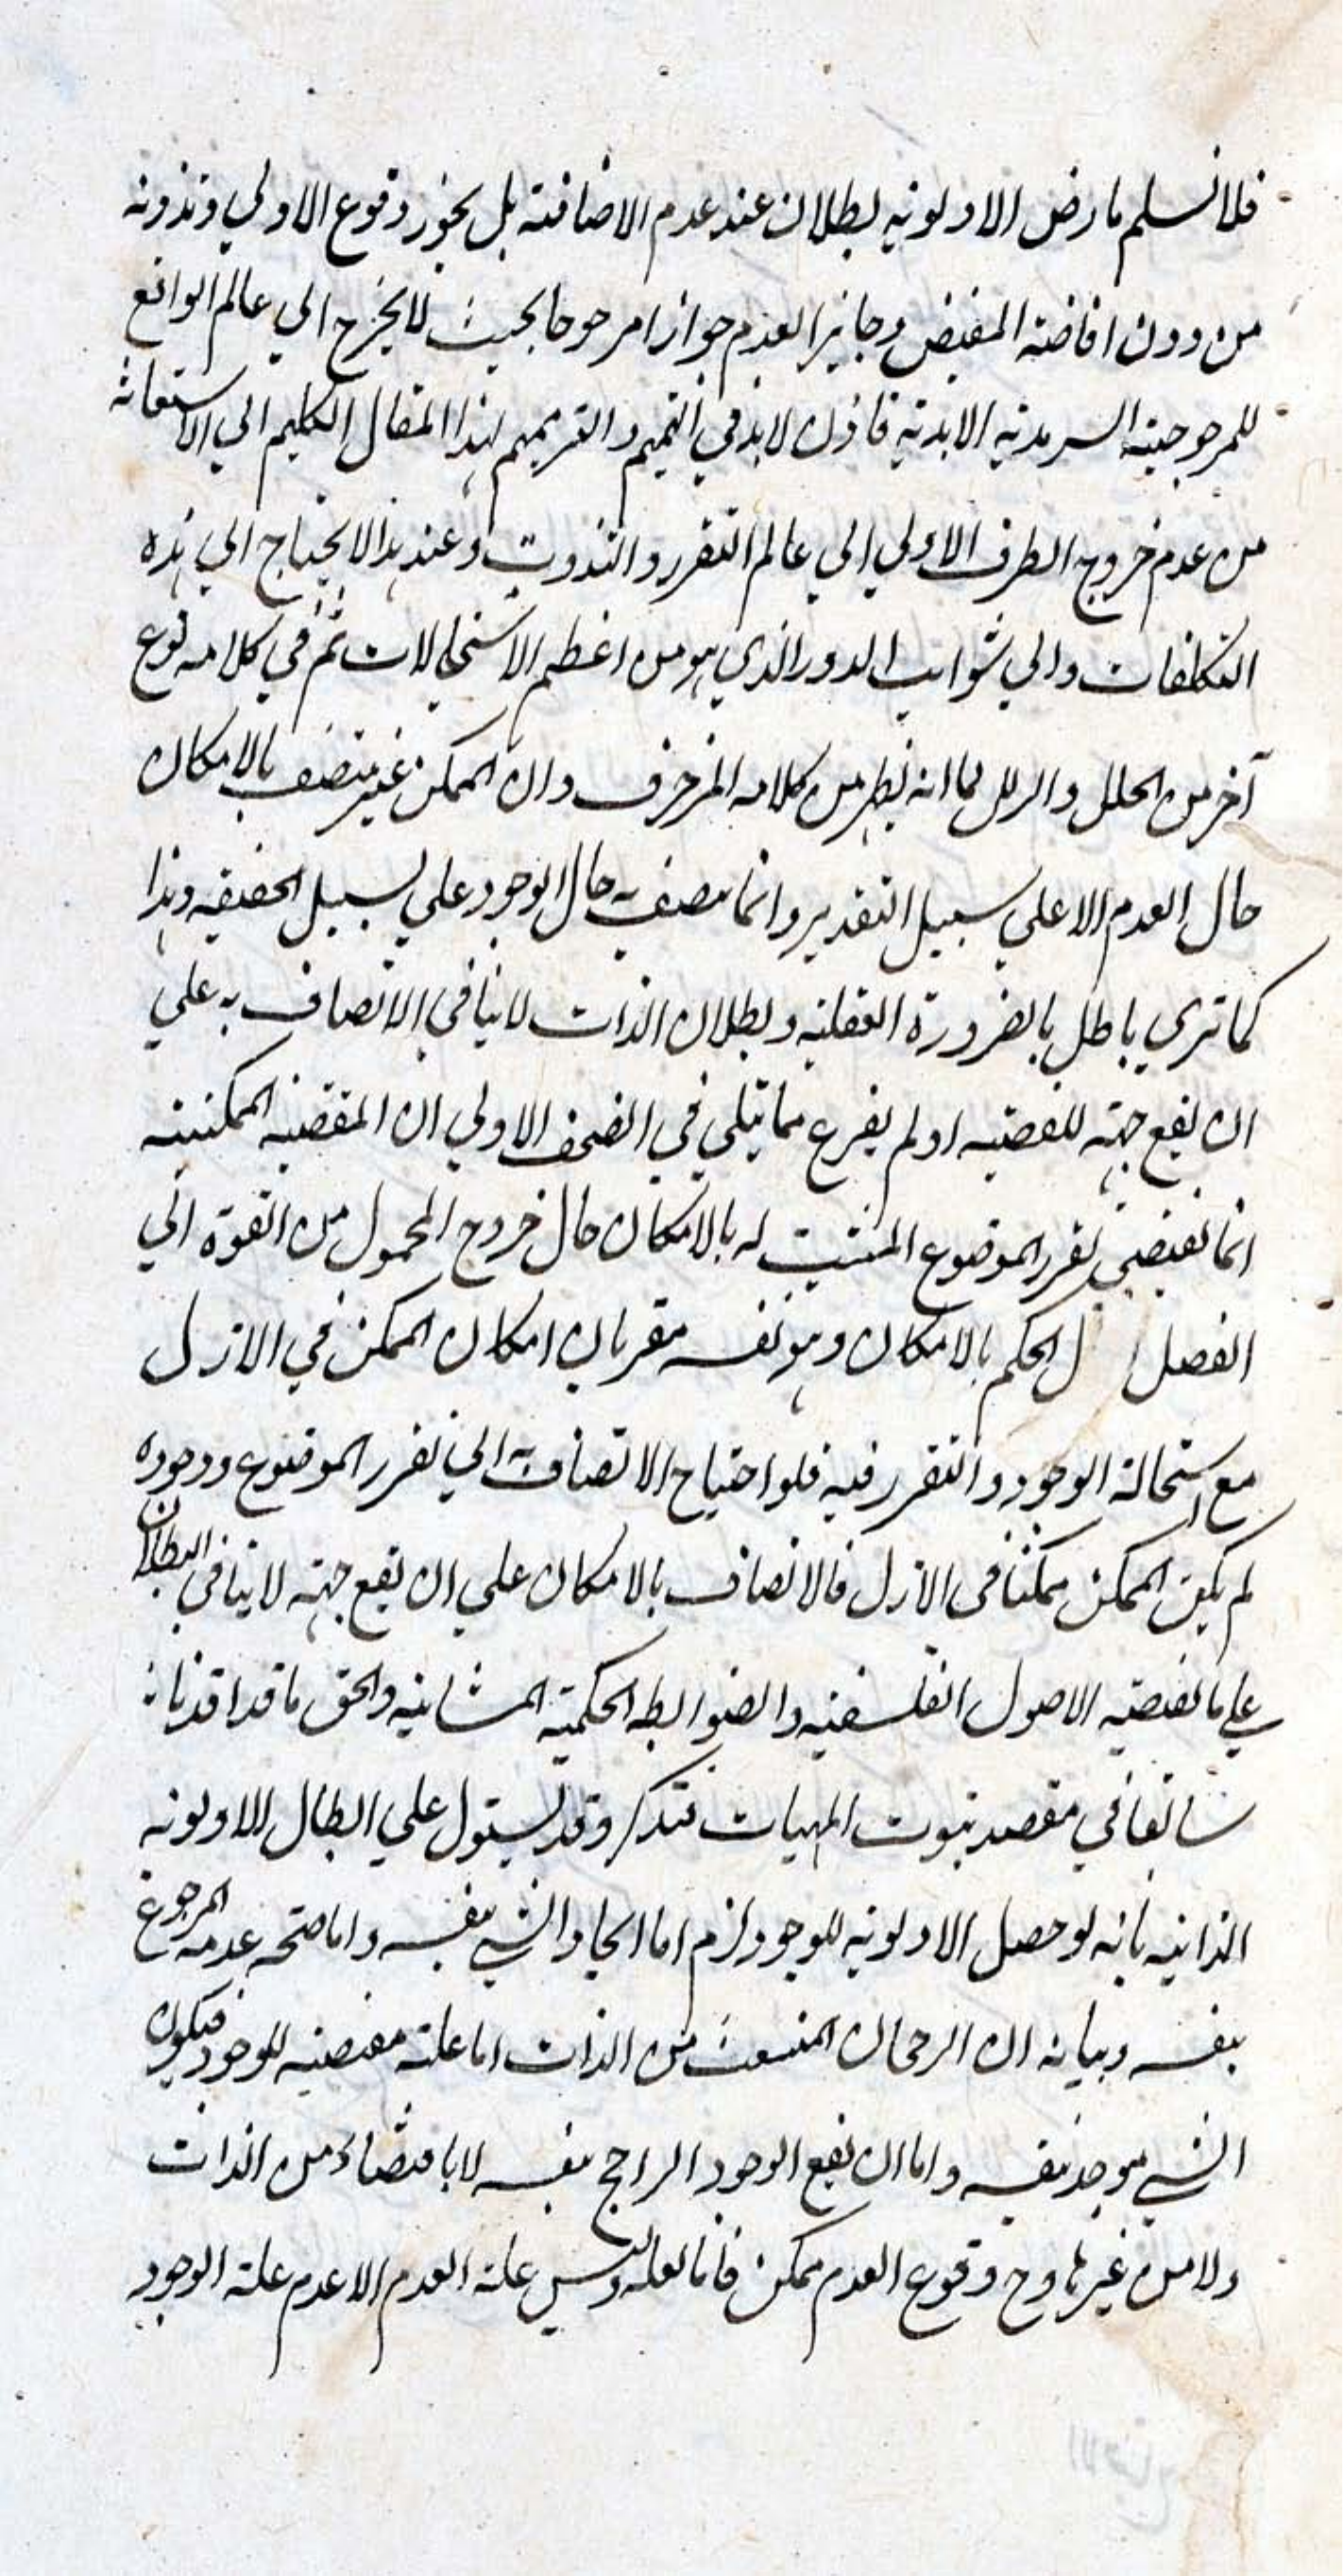 فلا نسلم مارض الاولوية لبطلان عند عدم الاضافته بل يجوز وقوع الاولي وتذوته
من دون افاضته المفيض وجايز العدم جوازا مرجوحا بحيث لا يخرج الي عالم الواقع
للمرجوحيته السرمدية الابدية فاذن لا بد في التتميم والترميم لهذا المقال الكليم الي الاستعانة
من عدم خروج الطرف الاولي الي عالم التقرر والتذوت وعند هذا لا يحتاج الي هذه
التكلفات والي شوايب الدور الذي هو من اعظم الاستحالات ثم في كلامه نوع
آخر من الخلل والزلل لما انه يظهر من كلامه المزخرف وان الممكن غير متصف بالامكان
حال العدم الا علي سبيل التقدير وانما يتصف به حال الوجود علي سبيل الحقيقه وهذا
كما تري باطل بالضرورة العقلية وبطلان الذات لا ينافي الاتصاف به علي
ان يقع جهته للقضيه اولم يقرع مما يتلي في الصحف الاولي ان المقضيه الممكنيته
انما تقتضي تقرر الموضوع المثبت له بالامكان حال خروج المحمول من القوة الي
الفصل ل الحكم بالامكان وهو نفسه مقر بان امكان الممكن في الازل
مع استحالة الوجود والتقرر فيه فلو احتياج الاتصاف به الي تقرر الموضوع ووجوده
لم يكن الممكن ممكنا في الازل فالاتصاف بالامكان علي ان يقع جهته لا ينافي البطلان
علي ما تقتضيه الاصول الفلسفيه والضوابطه الحكميته المشائيه والحق ما قدا قدناه
سابقا في مقصد ثبوت المهيات فتذكر وقد يستدل علي ابطال الاولويه
الذاتيه بانه لو حصل الاولويه للوجود لزم اما ايجاد الشي بنفسه واما صحه عدمه المرجوع
بنفسه وبيانه ان الرحجان المنبعث من الذات اما علته مقتضيه للوجود فيكون
الشي موجد نفسه واما ان يقع الوجود الراجح بنفسه لا باقتضاء من الذات
ولا من غيرها وح وقوع العدم ممكن فانا لعله وليس علة العدم الا عدم علة الوجود